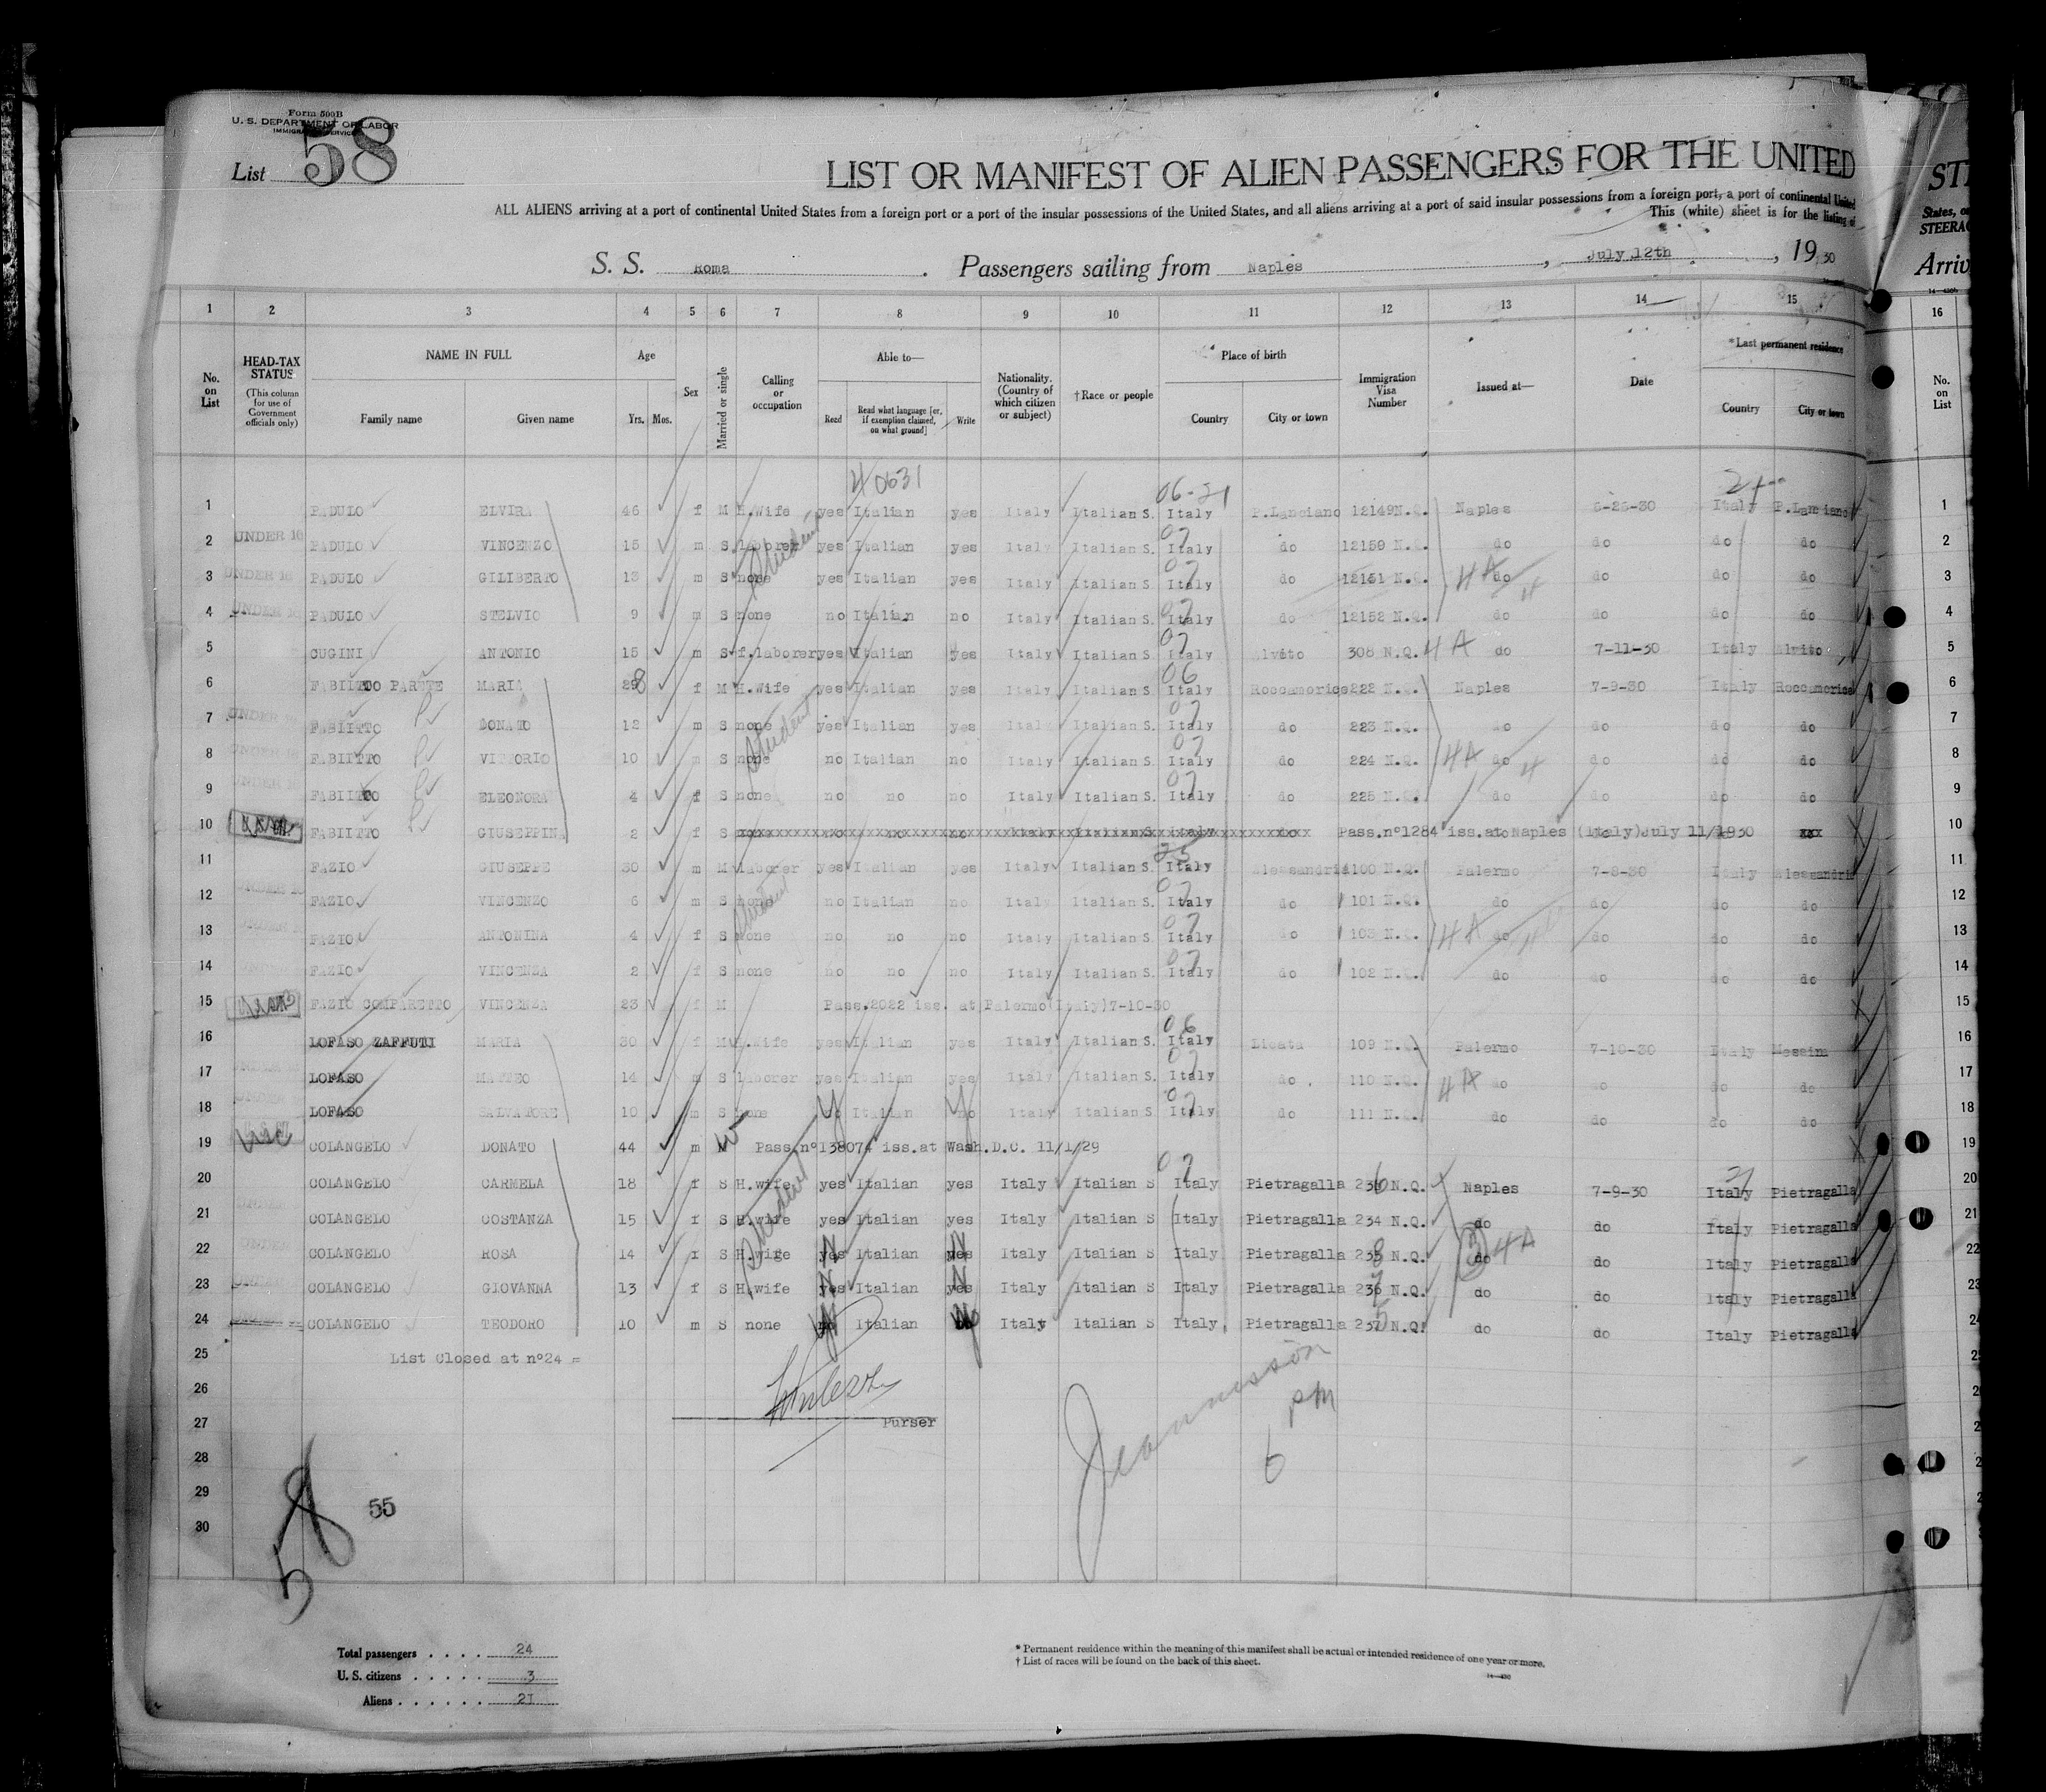 Form 500B
U. S. DEPARTMENT OF LABOR
IMMIGRATION SERVICE
List 58
LIST OR MANIFEST OF ALIEN PASSENGERS FOR THE UNITED
ALL ALIENS arriving at a port of continental United States from a foreign port or a port of the insular possessions of the United States, and all aliens arriving at a port of said insular possessions from a foreign port, a port of continental United
This (white) sheet is for the listing of
S. S. Roma. Passengers sailing from Naples, July 12th, 1930
1 2 3 4 5 6 7 8 9 10 11 12 13 14 15
No. on List
HEAD-TAX STATUS
(This column for use of Government officials only)
NAME IN FULL
Family name Given name
Age
Yrs. Mos.
Sex
Married or single
Calling or occupation
Able to—
Read Read what language [or, if exemption claimed, on what ground] Write
Nationality. (Country of which citizen or subject)
†Race or people
Place of birth
Country City or town
Immigration Visa Number
Issued at—
Date
*Last permanent residence
Country City or town
40631 06-21
1 PADULO ELVIRA 46 f M H.Wife yes Italian yes Italy Italian S. Italy P.Lanciano 12149N.Q. Naples 6-25-30 Italy P.Lanciano
2 UNDER 16 PADULO VINCENZO 15 m S laborer yes Italian yes Italy Italian S. Italy do 12159 N.Q. do do do do
3 UNDER 16 PADULO GILIBERTO 13 m S none Student yes Italian yes Italy Italian S. Italy do 12151 N.Q. 4A do do do do
4 UNDER 16 PADULO STELVIO 9 m S none no Italian no Italy Italian S. Italy do 12152 N.Q. do do do do
5 CUGINI ANTONIO 15 m S f.laborer yes Italian yes Italy Italian S. Italy Alvito 308 N.Q. 4A do 7-11-30 Italy Alvito
6 MARIA f M H.Wife yes Italian yes Italy Italian S. Italy Roccamorice 222 N.Q. Naples 7-9-30 Italy Roccamorice
7 UNDER 16 FABIITTO DONATO 12 m S none Student yes Italian yes Italy Italian S. Italy do 223 N.Q. do do do do
8 UNDER 16 FABIITTO VITTORIO 10 m S none no Italian no Italy Italian S. Italy do 224 N.Q. 4A do do do do
9 UNDER 16 FABIITTO ELEONORA 4 f S none no no no Italy Italian S. Italy do 225 N.Q. do do do do
10 FABIITTO GIUSEPPINA 2 f S Pass.nº1284 iss.at Naples (Italy)July 11/1930
11 FAZIO GIUSEPPE 30 m M laborer yes Italian yes Italy Italian S. Italy Alessandria 100 N.Q. Palermo 7-8-30 Italy Alessandria
12 UNDER 16 FAZIO VINCENZO 6 m S none Student no Italian no Italy Italian S. Italy do 101 N.Q. do do do do
13 FAZIO ANTONINA 4 f S none no no no Italy Italian S. Italy do 103 N.Q. 4A do do do do
14 FAZIO VINCENZA 2 f S none no no no Italy Italian S. Italy do 102 N.Q. do do do do
15 FAZIO COMPARETTO VINCENZA 23 f M Pass.2022 iss. at Palermo(Italy)7-10-30
16 LOFASO ZAFFUTI MARIA 30 f M H.Wife yes Italian yes Italy Italian S. Italy 109 N.Q. Palermo 7-10-30 Italy Messina
17 LOFASO MATTEO 14 m S laborer yes Italian yes Italy Italian S. Italy do 110 N.Q. 4A do do do do
18 LOFASO SALVATORE 10 m S none Italian Italy Italian S. Italy do 111 N.Q. do do do do
19 COLANGELO DONATO 44 m Pass.nº138074 iss.at Wash.D.C. 11/1/29
20 COLANGELO CARMELA 18 f S H.wife yes Italian yes Italy Italian S Italy Pietragalla 236 N.Q. Naples 7-9-30 Italy Pietragalla
21 COLANGELO COSTANZA 15 f S H.wife yes Italian yes Italy Italian S Italy Pietragalla 234 N.Q. do do Italy Pietragalla
22 COLANGELO ROSA 14 f S H.wife yes Italian yes Italy Italian S Italy Pietragalla N.Q. do 4A do Italy Pietragalla
23 COLANGELO GIOVANNA 13 f S H.wife yes Italian yes Italy Italian S Italy Pietragalla N.Q. do do Italy Pietragalla
24 COLANGELO TEODORO 10 m S none Italian Italy Italian S Italy Pietragalla N.Q. do do Italy Pietragalla
25 List Closed at nº24 =
26
27 Purser
28
29
30
6 PM
58 55
Total passengers . . . . 24
U. S. citizens . . . . . 3
Aliens . . . . . . 21
* Permanent residence within the meaning of this manifest shall be actual or intended residence of one year or more.
† List of races will be found on the back of this sheet.
States, or
STEERAG
Arriv
16
No. on List